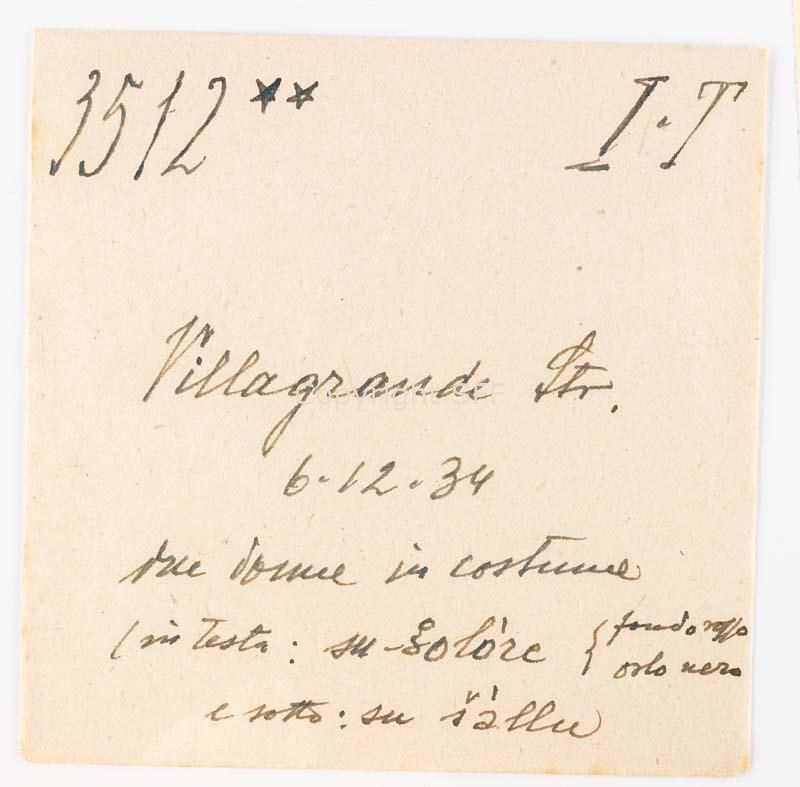 3512** I.T
Villagrande Str.
6.12.34
due donne in costume
(in testa: su golóre { fondo rosso
orlo nero
e sotto: su šállu